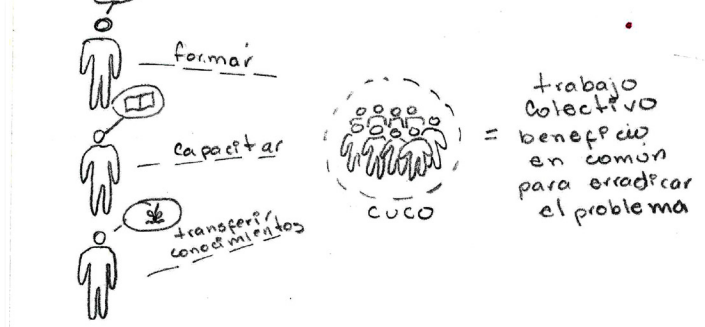 formar
capacitar
transferir
conocimientos
CUCO
=
trabajo
colectivo
beneficio
en común
para erradicar
el problema